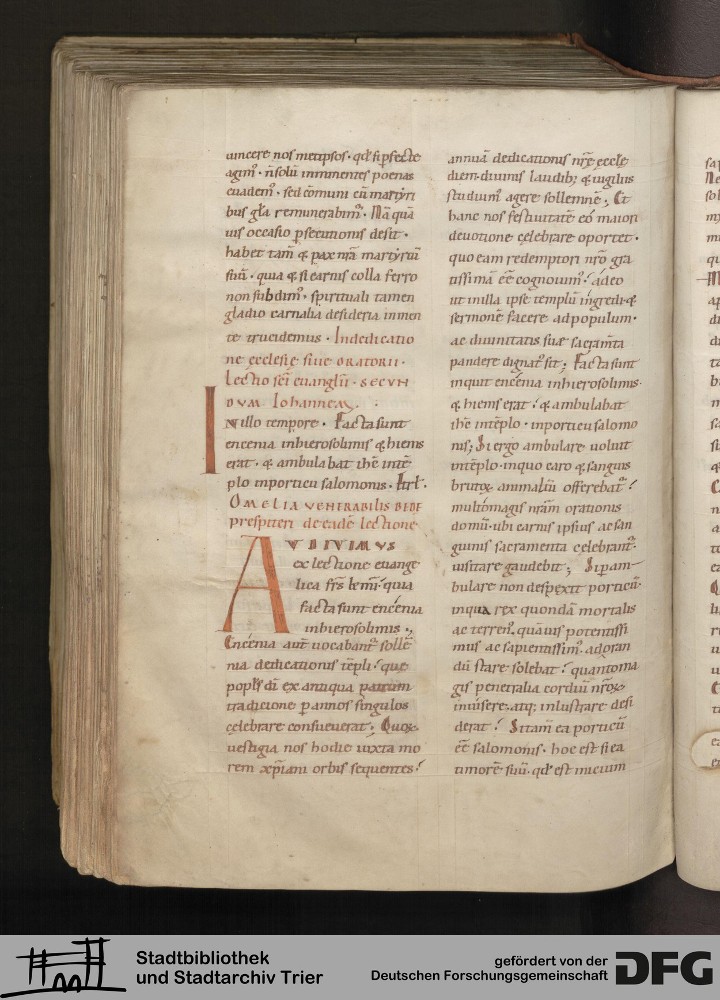 uincere nos metipsos · qđ si pfecte
agim᷒ · ñ solũ imminentes poenas
euadem᷒ · sed cõmuni cũ martyri
bus gła remunerabim᷒ · Nã quã
uis occasio psecutionis desit ·
habet tam̃ & pax nr̃a martyriũ
suũ · quia & si carnis colla ferro
non subdim᷒ · spirituali tamen
gladio carnalia desideria in men
te trucidemus · In dedicatio
ne ęcclesię siue ORATORII ·
Lectio sc̃i euanglii · SECVN
DVM Iohannem ·
IN illo tempore · Facta sunt
encenia in hierosolimis & hiems
erat · & ambulabat ihc̄ in tẽ
plo in porticu salomonis · &rł ·
OMELIA VENERABILIS BEDE
presbiteri de eadẽ lectione
AVDIVIMVS
ex lectione euange
lica frs̃ kmi̅ · quia
facta sunt encenia
in hierosolimis ·,
Encenia aut̃ uocabant᷒ sollẽ
nia dedicationis tẽpli · que
popłs dĩ ex antiqua patrum
tradicione p annos singulos
cęlebrare consueuerat · Quoꝝ
uestigia nos hodie iuxta mo
rem xp̃iani orbis sequentes ·
annuã dedicationis nr̃ę ęcclę
diem diuinis laudib; & uigiliis
studuim᷒ agere sollemnẽ ; Et
hanc nos festiuitatẽ eo maiori
deuotione cęlebrare oportet ·
quo eam redemptori nr̃o gra
tissimã eẽ cognouim᷒ · adeo
ut in illa ipse templũ ingredi · &
sermonẽ facere ad populum ·
ac diuinitatis suę sacram̃ta
pandere dignat᷒ sit ; Facta sunt
inquit encenia in hierosolimis ·
& hiems erat · & ambulabat
ihc̄ in tẽplo · in porticu salomo
nis ; Si ergo ambulare uoluit
in tẽplo · in quo caro & sanguis
brutoꝝ animaliũ offerebat᷒ ·
multo magis nr̃am orationis
domũ · ubi carnis ipsius ac san
guinis sacramenta cęlebrant᷒ ·
uisitare gaudebit ; Si p am-
bulare non despexit porticũ ·
in qua rex quondã mortalis
ac terren᷒ · quãuis potentissi
mus ac sapientissim᷒ · ad oran
dũ stare solebat · quanto ma
gis penetralia cordiũ nr̃oꝝ
inuisere · atq; inlustrare desi
derat · Si tam̃ ea porticũ
eẽ salomonis · hoc est si ea
timorẽ suũ · qđ est inicium
Stadtbibliothek
und Stadtarchiv Trier
gefördert von der
Deutschen Forschungsgemeinschaft
DFG